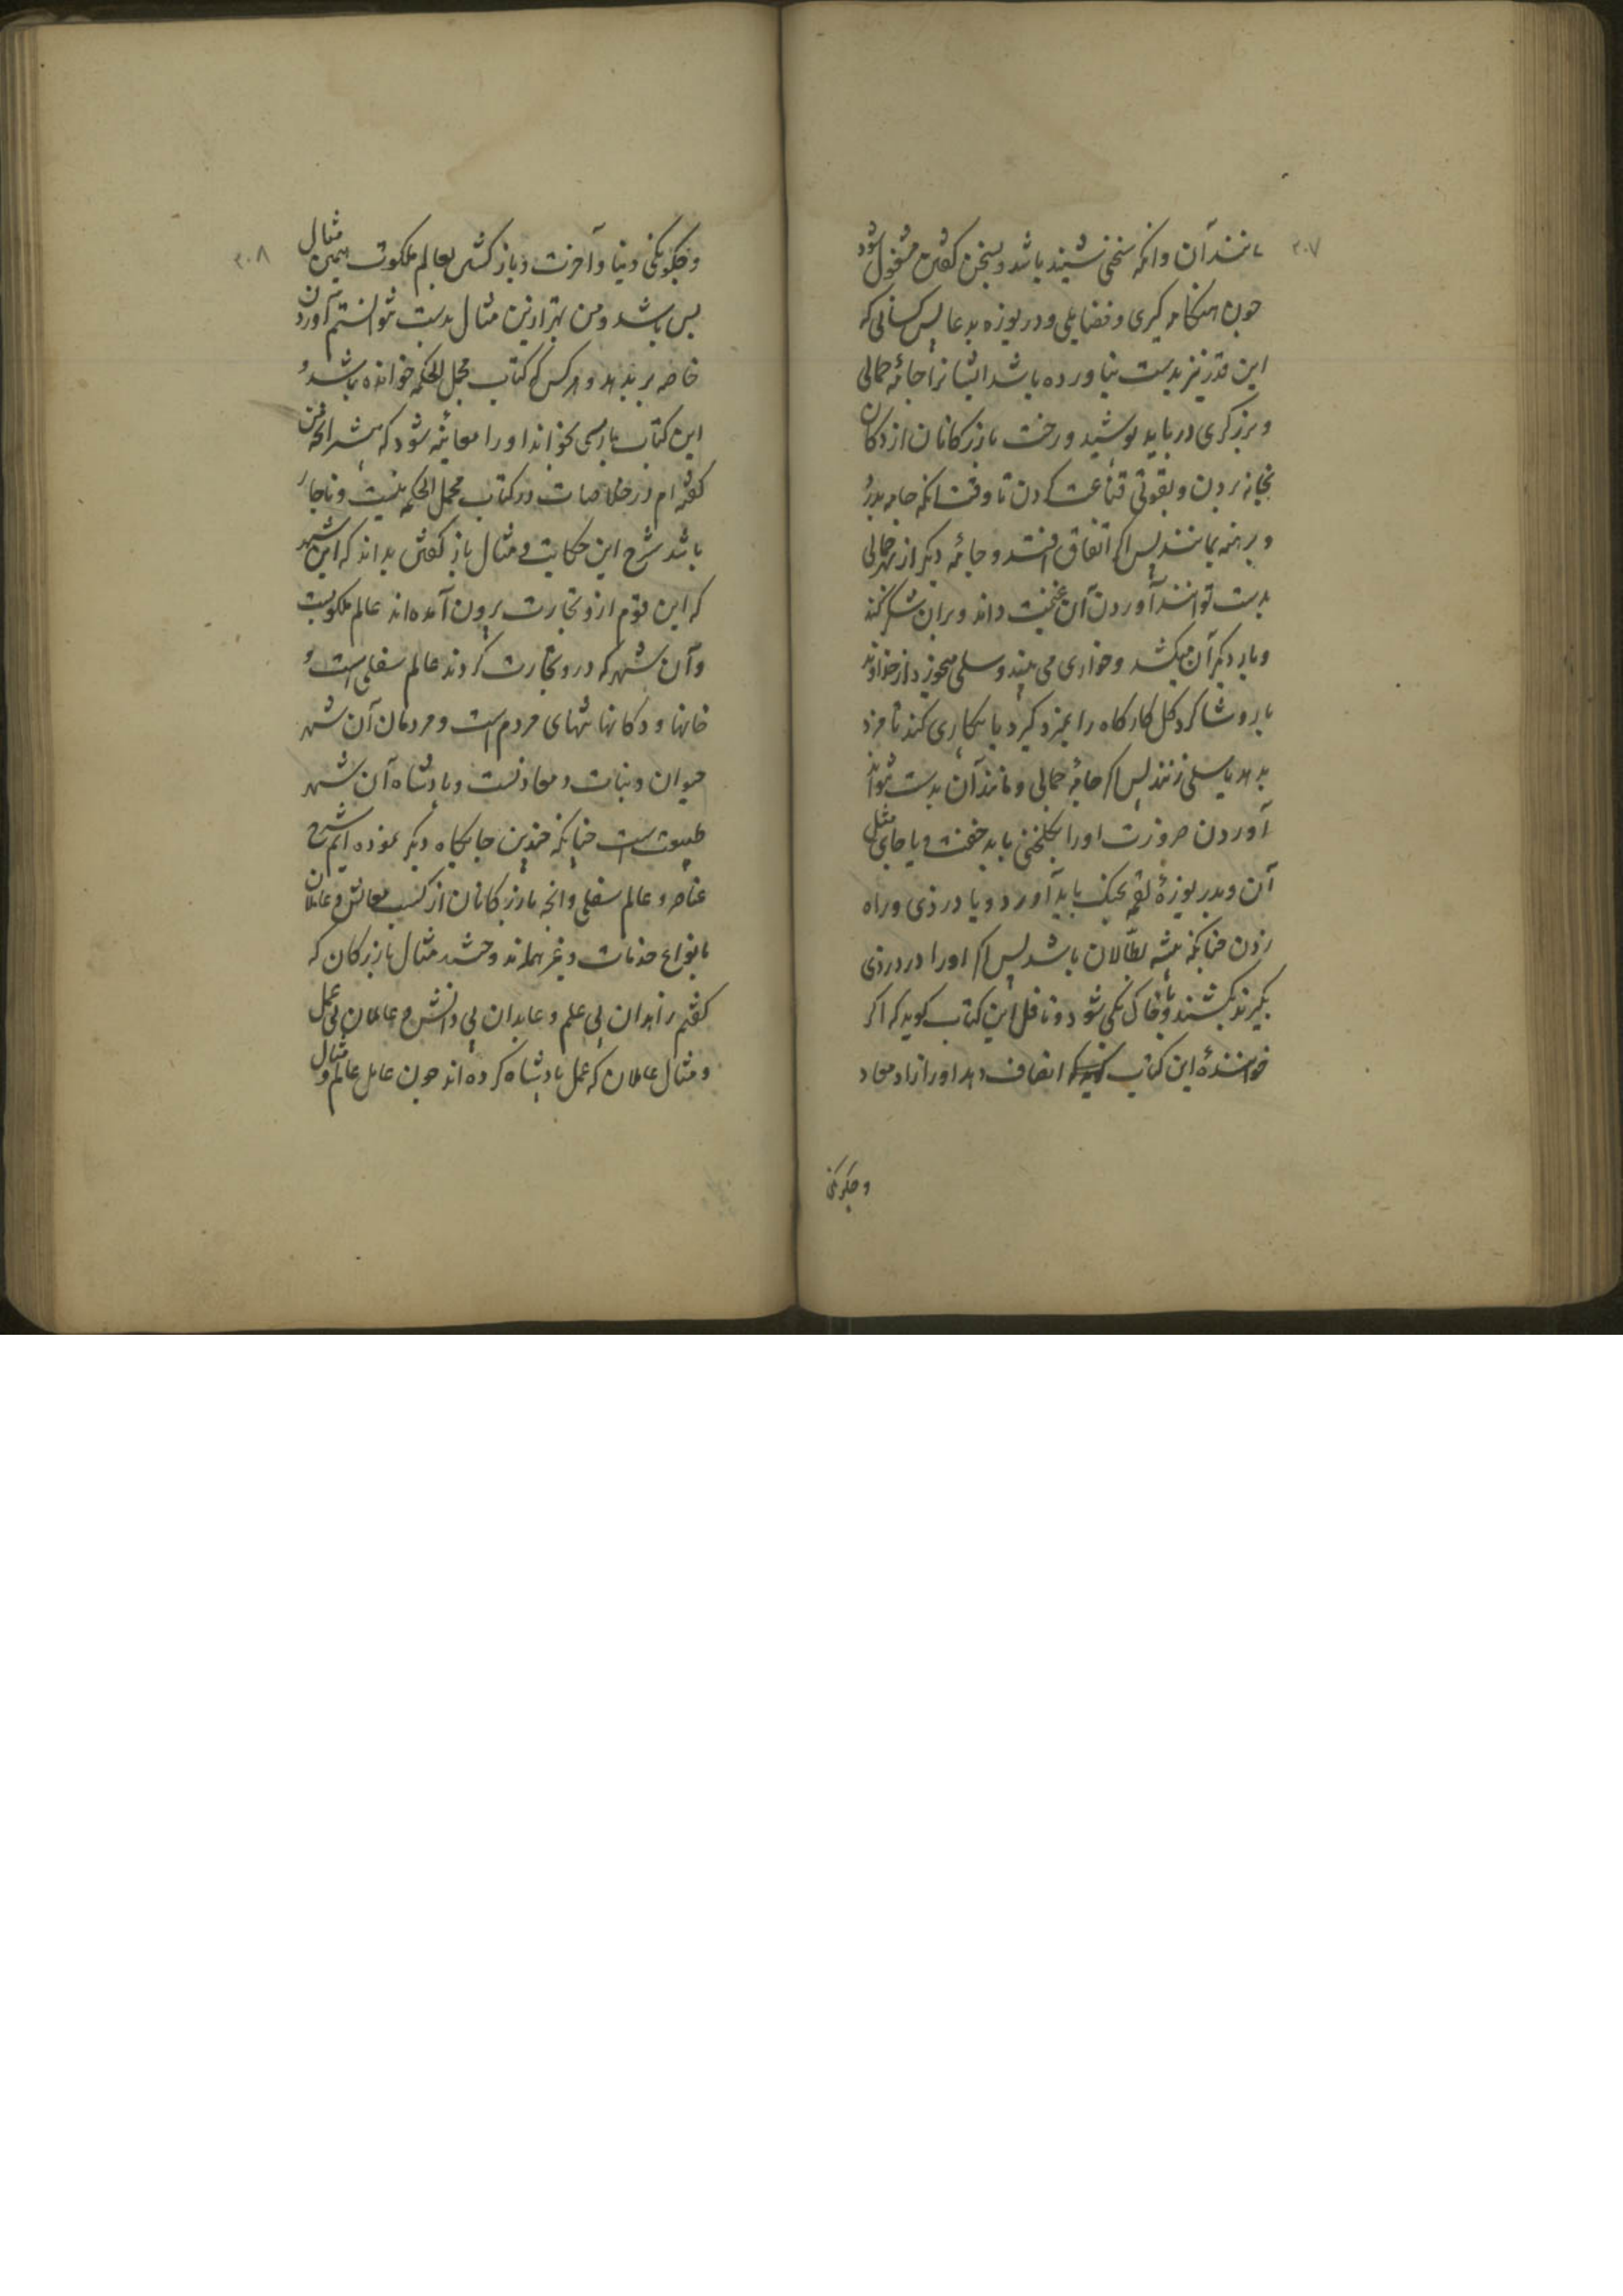 ۳۰۷
مانند آن وانکه سخنی شنیده باشد و بسخن کفتن مشغول شود
چون هنکامه کیری و فضایلی و دریوزه بدعا پس کسانی که
این قدر نیز بدست نیاورده باشد ایشانرا جامهٔ حمالی
و برزکری درباید پوشید و رخت بازرکانان از دکان
بخانه بردن و بقوتی قناعت کردن تا وقت انکه جامه بدرد
و برهنه بمانند پس اکر اتفاق افتد و جامهٔ دیکر از بهر حمالی
بدست توانند آوردن آن غنیمت داند و بران شکر کند
و بار دیکر آن میکشد و خواری می بیند و سیلی میخورد از خداوند
بار و شاکرد کل کارکاه را بمزد کیرد یا بیکاری کند تا مزد
بدهد یا سیلی زنند پس اکر جامهٔ حمالی و مانند آن بدست نتواند
آوردن ضرورت اورا بکلخنی باید خفت و یا جای مثل
آن و بدریوزهٔ لقمه بچنک باید آورد و یا دزدی و راه
زدن چنانکه پیشه بطالان باشد پس اکر اورا در دزدی
بکیرند بکشند و با خاک یکی شود و ناقل این کتاب کوید که اکر
خوانندهٔ این کتاب انصاف دهد اورا از معاد
و چکونکی
۳۰۸
و چکونکی دنیا و آخرت و باز کشتن بعالم ملکوت همین مثال
بس باشد و من بهتر ازین مثال بدست نتوانستم آوردن
خاصه بر بدیهه و هرکس که کتاب مجمل الحکمه خوانده باشد و
این کتاب پارسی بخواند او را معاینه شود که بیشتر انچه من
کفته ام در خلاصات در کتاب مجمل الحکمه نیست و ناچار
باشد شرح این حکایت و مثال باز کفتن بداند که این شهر
که این قوم ازو تجارت برون آمده اند عالم ملکوتست
و آن شهر که درو تجارت کردند عالم سفلی است و
خانها و دکانها تنهای مردم است و مردمان آن شهر
حیوان و نبات و معادنست و پادشاه آن شهر
طبیعت است چنانکه چندین جایکاه دیکر نموده ایم شرح
عناصر و عالم سفلی و انچه بازرکانان از کسب معاش و عاملان
بانواع خدمات و غیرهمااند و حشد مثال بازرکان که
کفتیم زاهدان بی علم و عابدان بی دانش و عالمان بی عمل
و مثال عاملان که عمل پادشاه کرده اند چون عامل عالم و مثال